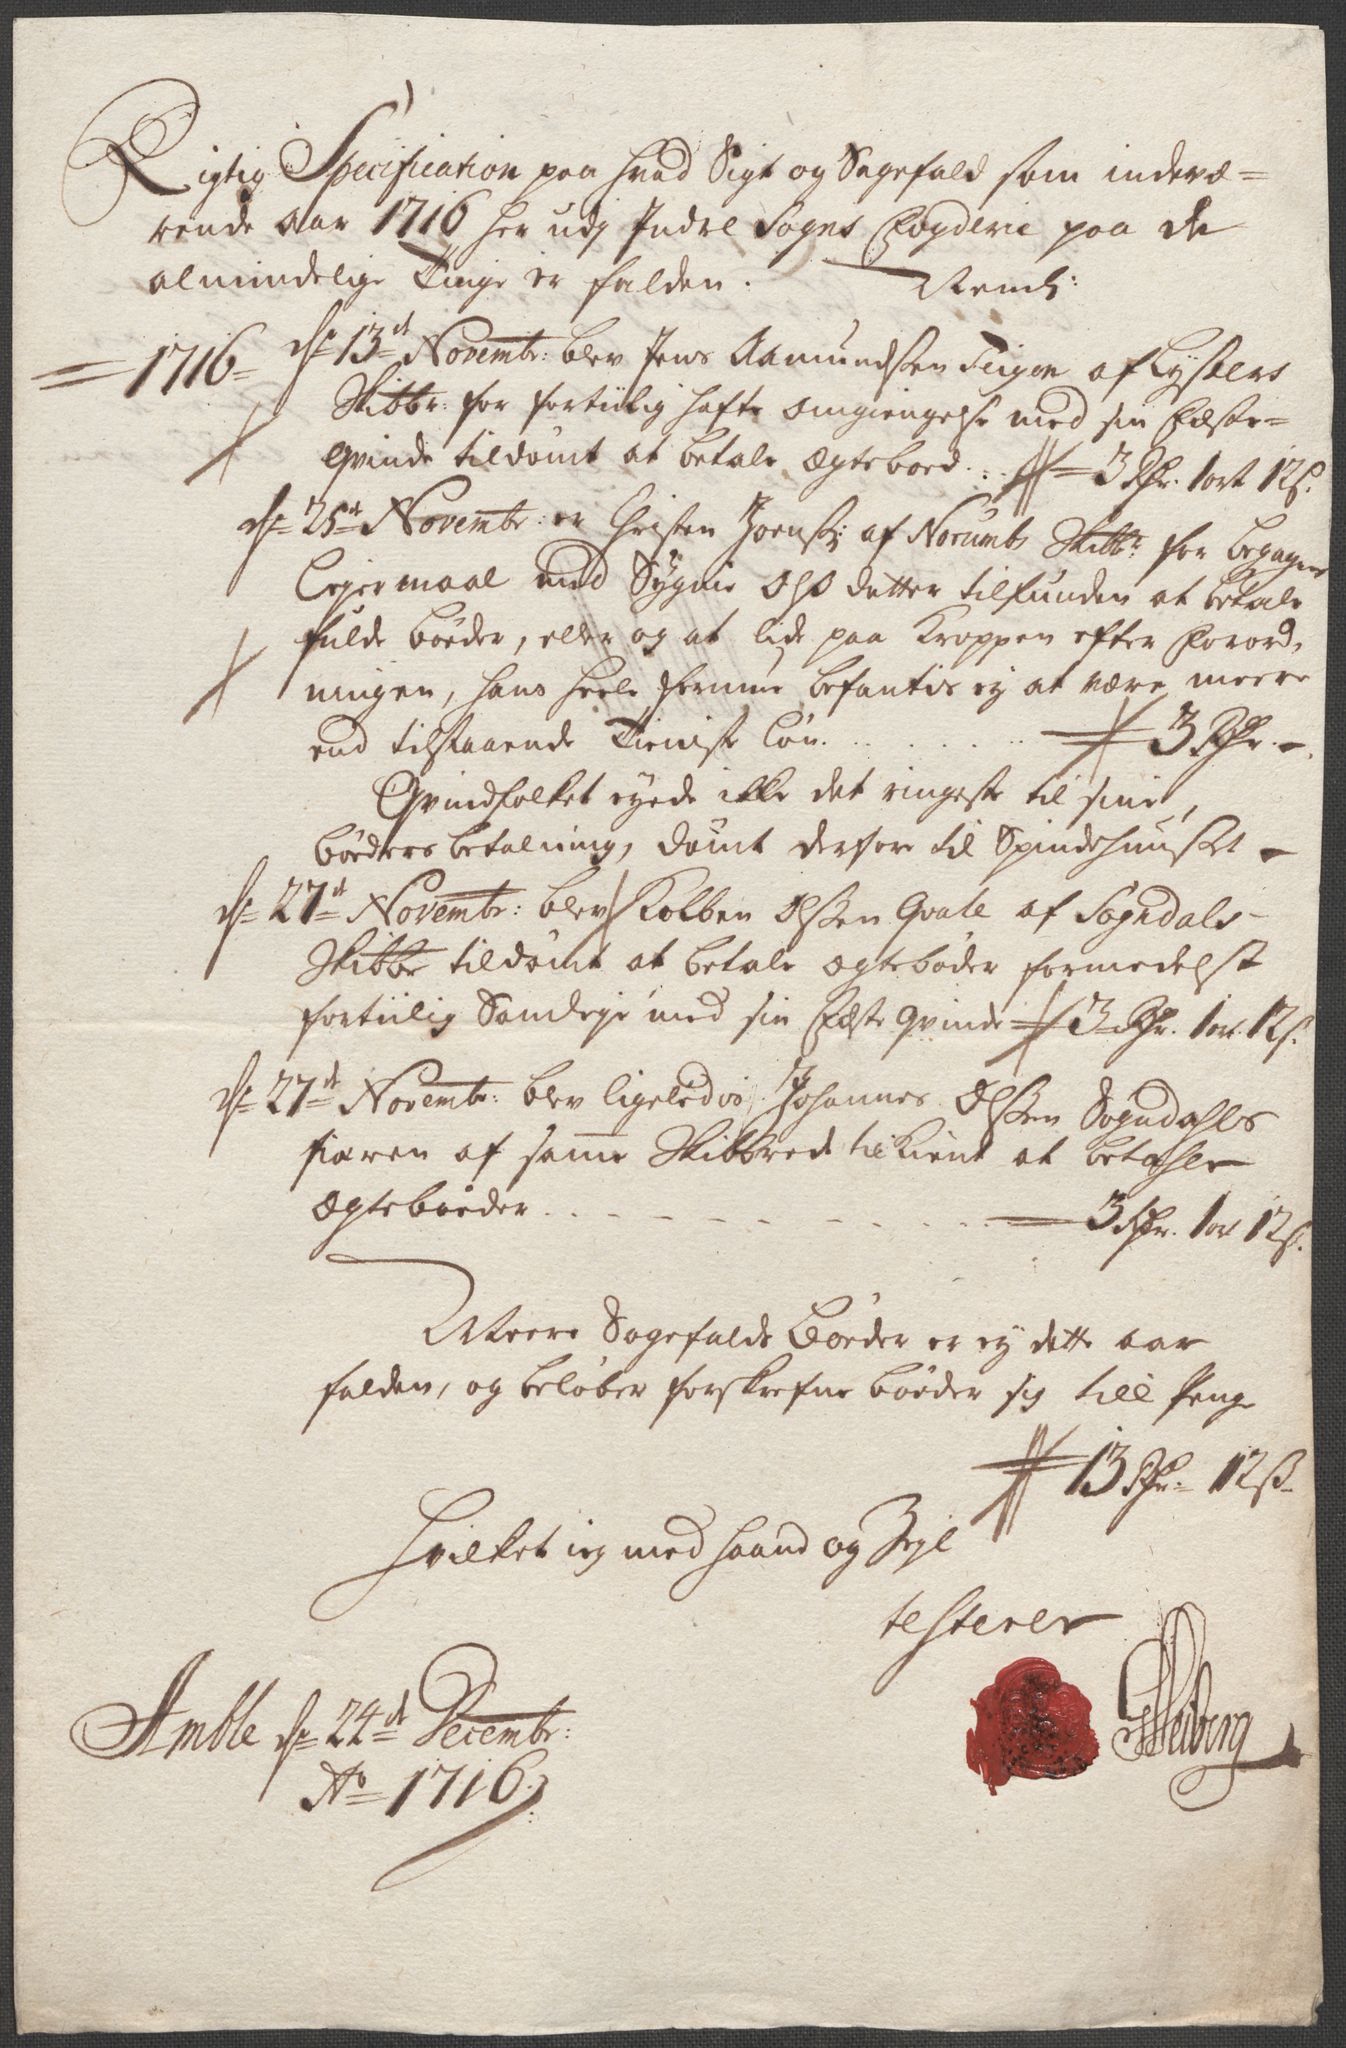 Rigtig Specification paa hvad Sigt og Sagefald som indevæ=
rende aar 1716 her udj Indre Sogns Fogderie paa de
almindelige Tinge er falden. Nemb:
1716 d: 13de Novembr: blev Jens Aamundsen Teigen af Lysters
Skibbr: for fortiilig hafte omgiengelse med sin Fæste=
qvinde tildømt at betale Egtebøed .. 3 Rdr. 1 ort 12 s.
d: 25de Novembr: er Christen Joenss: af Norumbs Skibbr: for begagne
Leyermaal med Sygnie Olsdatter tilfunden at betale
fulde bøeder, eller og at lide paa Kroppen efter Forord,
ningen, hans heele formue befantis ej at være, meere
end tilstaaende Tieniste Løn. . . . . . . 3 Rdr. -.
Qvindfolket eyede ikke det ringeste til sine
bøeders betalning, dømt derfore til Spindehuuset -
d: 27de Novembr: blev Kolben Olssen Qvale af Sogndals-
Skibbr tildømt at betale egtebøder formedelst
fortiilig Samleje med sin Fæste Qvinde 3 Rdr. 1 ort 12 s.
d: 27de Novembr: blev ligeledis Johannes Olssen Sogndahls
fiæren af samme Skibbred tilkient at betahle
Egtebøeder . . . . . . . . . . 3 Rdr. 1 ort 12 s.
Meere Sagefalds Bøeder er ej dette aar
falden, og beløber forskrefne bøeder sig till Penge
13 Rdr: 12 ß
Hvilket ieg med haand og Zegl
testerer
Amble d: 24de Decembr:
Ao 1716
Leiberg